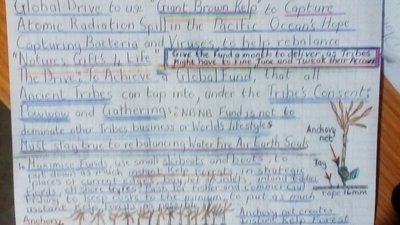 Global Drive to use "Giant Brown Kelp" to Capture
Atomic Radiation Spill in the Pacific Ocean's Hope
Capturing Bacteria and Viruses to help rebalance
"Nature's Gifts 4 Life
Give the Fund a month to deliver, as Tribes
Might have to Fine Tune and Tweak their Account
The Drive's To Achieve a "Global Fund, that all
Ancient Tribes can tap into, under the Tribe's Consent:
Powwow and Gatherings: NB NB Fund is not to
dominate other Tribes business or World's lifestyles
Must stay true to rebalancing Water Fire Air Earth Souls
To Maximise Funds, use small skiboats and boats, to
put down as much instant Kelp Forest in strategic
places of current
for fisher and commercial
fishing to keep costs to the minimum, to put as much
instant
Anchovy
net
Tag
rope 16mm
Anchovy
Anchovy net creates
Instant Kelp Forest